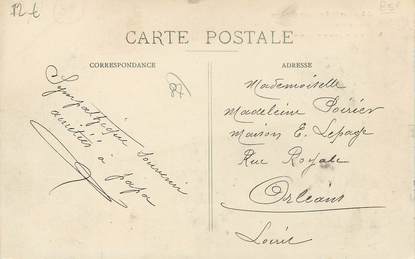 12 €
CARTE POSTALE
CORRESPONDANCE
ADRESSE
Sympathique souvenir
amitiés à papa
Mademoiselle
Madeleine Poirier
Maison E. Lepage
Rue Royale
Orléans
Loiret